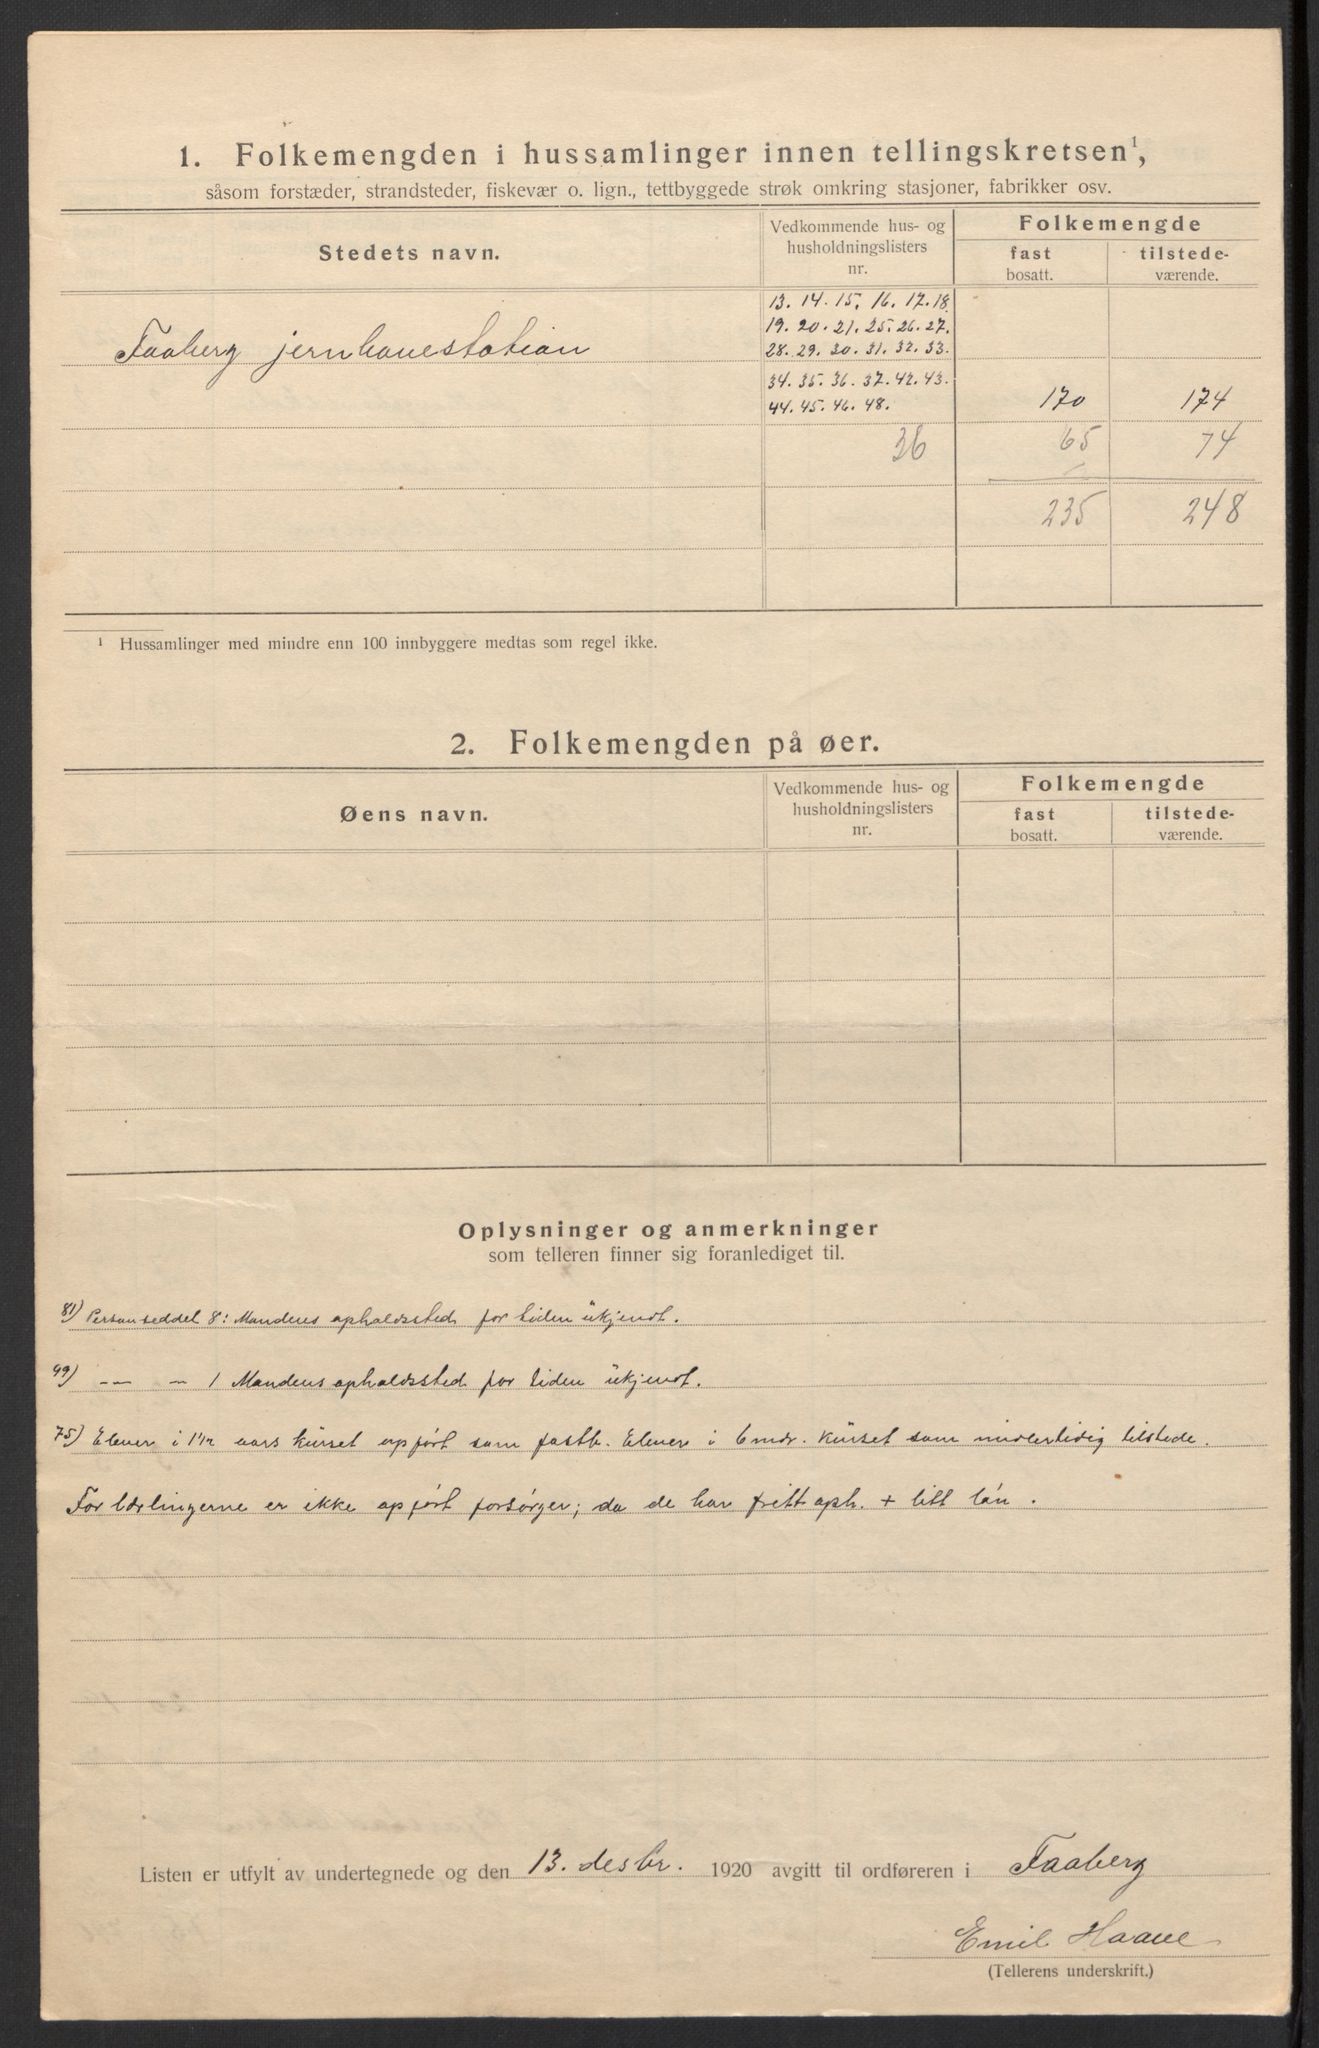 1. Folkemengden i hussamlinger innen tellingskretsen¹,
såsom forstæder, strandsteder, fiskevær o. lign., tettbyggede strøk omkring stasjoner, fabrikker osv.
Stedets navn.
Vedkommende hus- og husholdningslisters nr.
Folkemengde
fast bosatt.
tilstede-værende.
13. 14. 15. 16. 17. 18.
19. 20. 21. 25. 26. 27.
Faaberg jernbanestation
28. 29. 30. 31. 32. 33.
34. 35. 36. 37. 42. 43.
44. 45. 46. 48. 170 174
36 65 74
235 248
¹ Hussamlinger med mindre enn 100 innbyggere medtas som regel ikke.
2. Folkemengden på øer.
Øens navn.
Vedkommende hus- og husholdningslisters nr.
Folkemengde
fast bosatt.
tilstede-værende.
Oplysninger og anmerkninger
som telleren finner sig foranlediget til.
81) Personseddel 8: Mandens opholdssted for tiden ukjendt.
99) — – 1 Mandens opholdssted for tiden ukjendt.
75) Elever i 1½ aars kurset opført som fastb. Elever i 6 mdr. kurset som midlertidig tilstede.
For lærlingerne er ikke opført forsørger; da de har fritt oph. + litt lón.
Listen er utfylt av undertegnede og den 13. desbr. 1920 avgitt til ordføreren i Faaberg
Emil Haave
(Tellerens underskrift.)